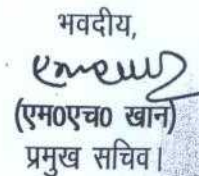 भवदीय,
(एम0एच0 खान)
प्रमुख सचिव।